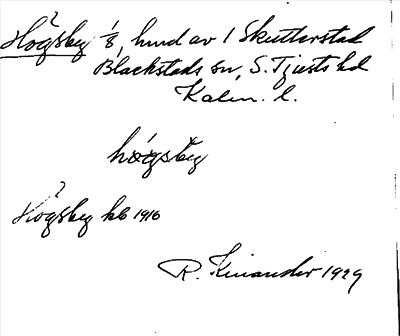 Högsby 1/8, hmd av 1 Skutterstad
Blackstads sn, S. Tjusts hd
Kalm. l.
hö́gsby
Högsby kb 1916
R. Kinander 1929